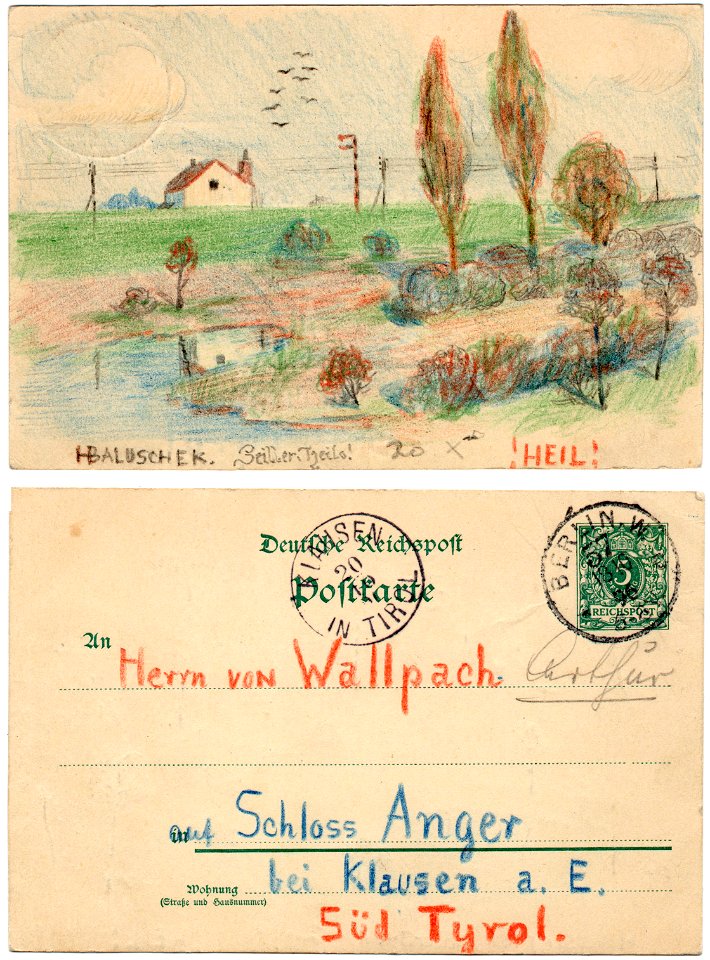 HBALUSCHEK. Heil! 20 X !HEIL!
Deutsche Reichspost
Postkarte
KLAUSEN
20
IN TIROL
BERLIN W.
5
REICHSPOST
An
Herrn von Wallpach.
Arthur
in
auf Schloss Anger
bei Klausen a. E.
Wohnung
(Straße und Hausnummer)
Süd Tyrol.